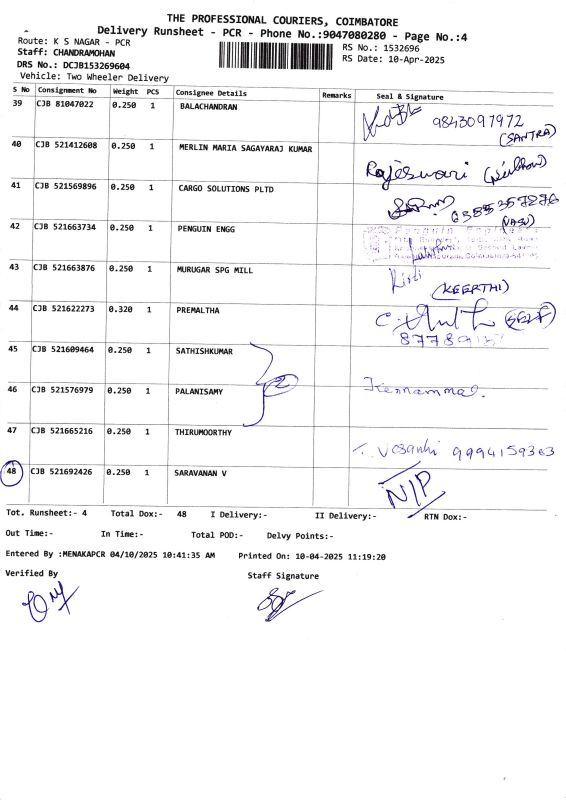 THE PROFESSIONAL COURIERS, COIMBATORE
Delivery Runsheet - PCR - Phone No.:9047080280 - Page No.:4
Route: K S NAGAR - PCR
RS No.: 1532696
Staff: CHANDRAMOHAN
RS Date: 10-Apr-2025
DRS No.: DCJB153269604
Vehicle: Two Wheeler Delivery
S No Consignment No Weight PCS Consignee Details Remarks Seal & Signature
39 CJB 81047022 0.250 1 BALACHANDRAN 9843097972
(SANTRA)
40 CJB 521412608 0.250 1 MERLIN MARIA SAGAYARAJ KUMAR
Rajeswari
41 CJB 521569896 0.250 1 CARGO SOLUTIONS PLTD
(VASU)
42 CJB 521663734 0.250 1 PENGUIN ENGG
43 CJB 521663876 0.250 1 MURUGAR SPG MILL
(KEERTHI)
44 CJB 521622273 0.320 1 PREMALTHA
(SELF)
45 CJB 521609464 0.250 1 SATHISHKUMAR
2
46 CJB 521576979 0.250 1 PALANISAMY
47 CJB 521665216 0.250 1 THIRUMOORTHY
9994159363
48 CJB 521692426 0.250 1 SARAVANAN V N/P
Tot. Runsheet:- 4 Total Dox:- 48 I Delivery:- II Delivery:- RTN Dox:-
Out Time:- In Time:- Total POD:- Delvy Points:-
Entered By :MENAKAPCR 04/10/2025 10:41:35 AM Printed On: 10-04-2025 11:19:20
Verified By Staff Signature